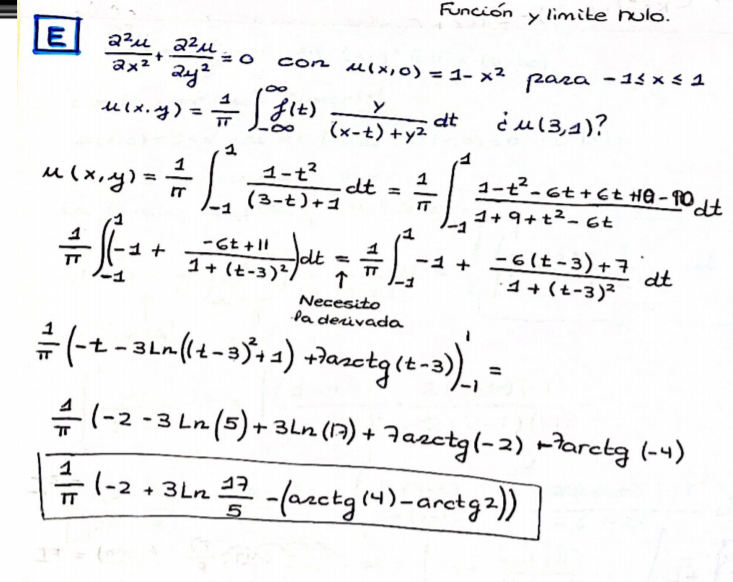 Función y limite nulo.
E ∂²u/∂x² + ∂²u/∂y² = 0 con u(x,0) = 1 - x² para -1 ≤ x ≤ 1
u(x.y) = 1/π ∫_{-∞}^{∞} f(t) y/((x-t)+y²) dt ¿u(3,1)?
u(x,y) = 1/π ∫_{-1}^{1} (1-t²)/((3-t)+1) dt = 1/π ∫_{-1}^{1} (1-t²-6t+6t+10-10)/(1+9+t²-6t) dt
1/π ∫_{-1}^{1} (-1 + (-6t+11)/(1+(t-3)²)) dt = 1/π ∫_{-1}^{1} -1 + (-6(t-3)+7)/(1+(t-3)²) dt
↑
Necesito
la derivada
1/π (-t - 3Ln((t-3)²+1) + 7arctg(t-3))_{-1}^{1} =
1/π (-2 - 3Ln(5) + 3Ln(17) + 7arctg(-2) + 7arctg(-4)
1/π (-2 + 3Ln 17/5 - (arctg(4) - arctg2))